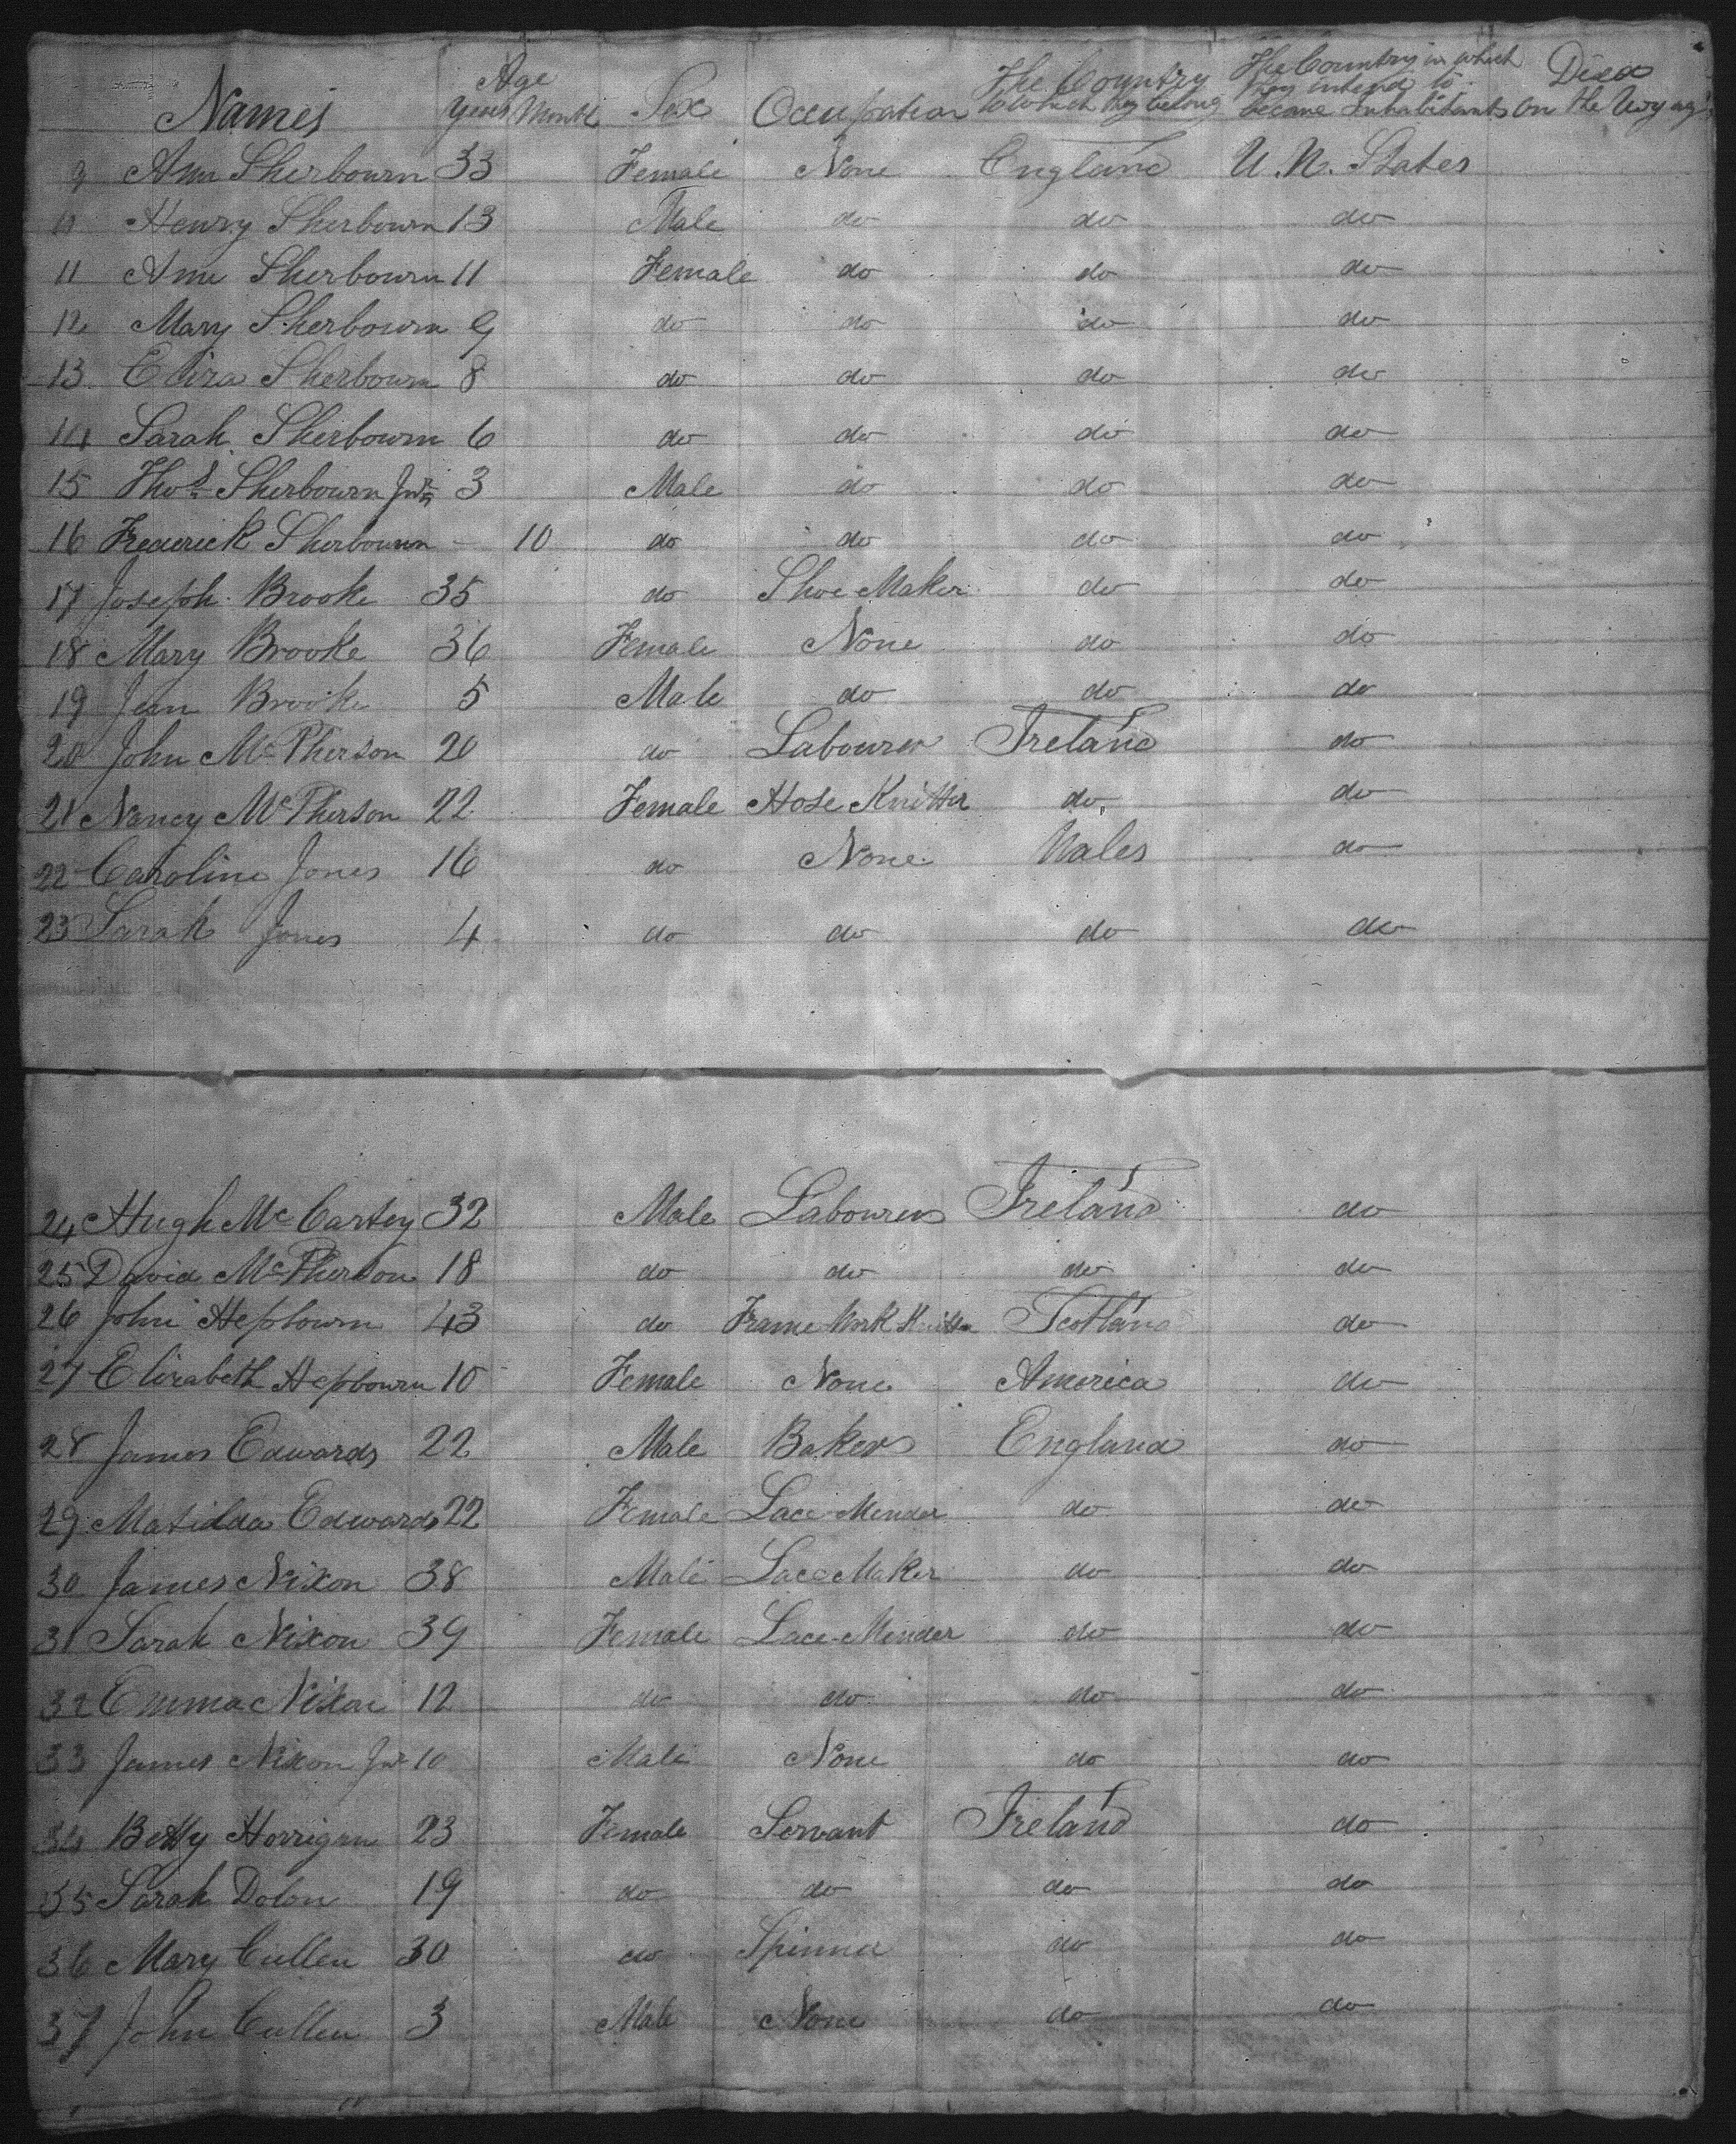 Names Age Years Month Sex Occupation The Country to which they belong The Country in which they intend to become Inhabitants Died on the Voyage
9 Ann Sherbourn 33 Female None England U.N. States
10 Henry Sherbourn 13 Male do do do
11 Ann Sherbourn 11 Female do do do
12 Mary Sherbourn 9 do do do do
13 Eliza Sherbourn 8 do do do do
14 Sarah Sherbourn 6 do do do do
15 Thos Sherbourn Junr 3 Male do do do
16 Frederick Sherbourn - 10 do do do do
17 Joseph Brooke 35 do Shoe Maker do do
18 Mary Brooke 36 Female None do do
19 Jean Brooke 5 Male do do do
20 John McPherson 20 do Labourer Ireland do
21 Nancy McPherson 22 Female Hose Knitter do do
22 Caroline Jones 16 do None Wales do
23 Sarah Jones 4 do do do do
24 Hugh McCartey 32 Male Labourer Ireland do
25 David McPherson 18 do do do do
26 John Hepbourn 43 do Frame Work Knitter Scotland do
27 Elizabeth Hepbourn 10 Female None America do
28 James Edwards 22 Male Baker England do
29 Matidda Edwards 22 Female Lace Mender do do
30 James Nixon 38 Male Lace Maker do do
31 Sarah Nixon 39 Female Lace Mender do do
32 Emma Nixon 12 do do do do
33 James Nixon Junr 10 Male None do do
34 Betty Horrigan 23 Female Servant Ireland do
35 Sarah Dolon 19 do do do do
36 Mary Cullen 30 do Spinner do do
37 John Cullen 3 Male None do do